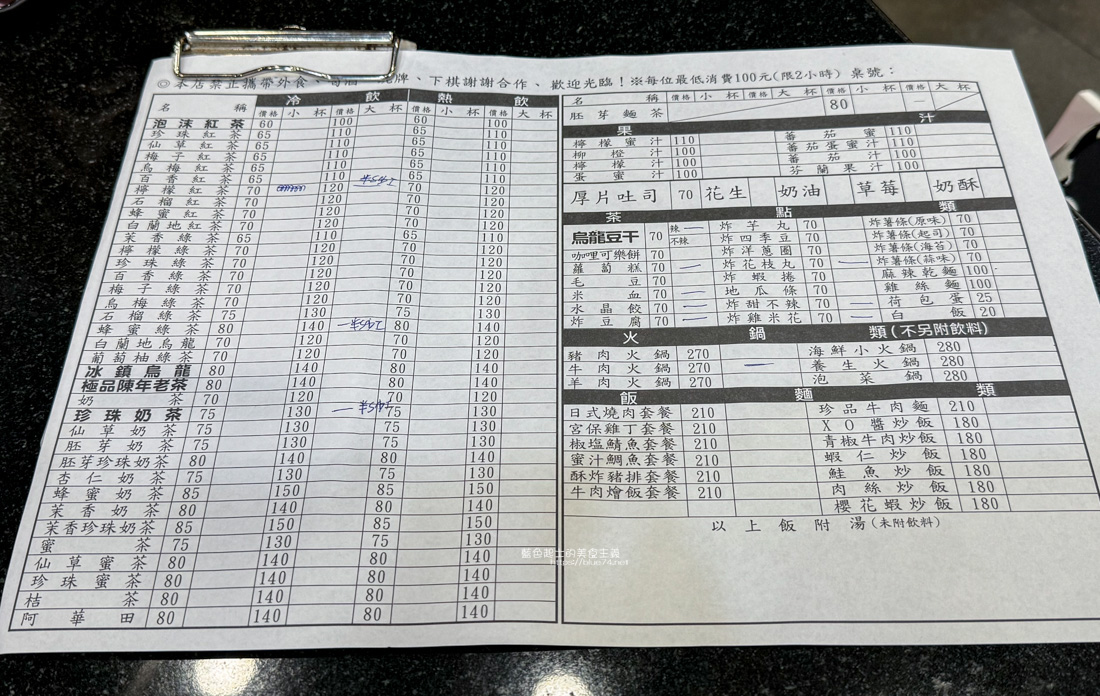 ◎本店禁止攜帶外食、 牌、下棋謝謝合作、歡迎光臨!※每位最低消費100元(限2小時) 桌號:
冷飲 熱飲
名稱 價格 小杯 價格 大杯 價格 小杯 價格 大杯
泡沫紅茶 60 100 60 100
珍珠紅茶 65 110 65 110
仙草紅茶 65 110 65 110
梅子紅茶 65 110 65 110
烏梅紅茶 65 110 65 110
百香紅茶 65 110 65 110
檸檬紅茶 70 120 70 120
石榴紅茶 70 120 70 120
蜂蜜紅茶 70 120 70 120
白蘭地紅茶 70 120 70 120
茉香綠茶 65 110 65 110
檸檬綠茶 70 120 70 120
珍珠綠茶 70 120 70 120
百香綠茶 70 120 70 120
梅子綠茶 70 120 70 120
烏梅綠茶 70 120 70 120
石榴綠茶 70 130 70 130
蜂蜜綠茶 80 140 80 140
白蘭地烏龍 70 120 70 120
葡萄柚綠茶 70 120 70 120
冰鎮烏龍 80 140 80 140
極品陳年老茶 80 140 80 140
奶茶 70 120 70 120
珍珠奶茶 75 130 75 130
仙草奶茶 75 130 75 130
胚芽奶茶 75 130 75 130
胚芽珍珠奶茶 80 140 80 140
杏仁奶茶 75 130 75 130
蜂蜜奶茶 85 150 85 150
茉香奶茶 80 140 80 140
茉香珍珠奶茶 85 150 85 150
蜜茶 75 130 75 130
仙草蜜茶 80 140 80 140
珍珠蜜茶 80 140 80 140
桔茶 80 140 80 140
阿華田 80 140 80 140
名稱 價格 小杯 價格 大杯 價格 小杯 價格 大杯
胚芽麵茶 80 —
果汁
檸檬蜜汁 110 蕃茄蜜 110
柳橙汁 100 蕃茄蛋蜜汁 110
檸檬汁 100 蕃茄汁 100
蛋蜜汁 100 芬蘭果汁 100
厚片吐司 70 花生 奶油 草莓 奶酥
茶點類
烏龍豆干 70 辣 不辣 炸芋丸 70 炸薯條(原味) 70
炸四季豆 70 炸薯條(起司) 70
咖哩可樂餅 70 炸洋蔥圈 70 炸薯條(海苔) 70
蘿蔔糕 70 炸花枝丸 70 炸薯條(蒜味) 70
毛豆 70 炸蝦捲 70 麻辣乾麵 100
米血 70 地瓜條 70 雞絲麵 100
水晶餃 70 炸甜不辣 70 荷包蛋 25
炸豆腐 70 炸雞米花 70 白飯 20
火鍋類(不另附飲料)
豬肉火鍋 270 海鮮小火鍋 280
牛肉火鍋 270 養生火鍋 280
羊肉火鍋 270 泡菜鍋 280
飯麵類
日式燒肉套餐 210 珍品牛肉麵 210
宮保雞丁套餐 210 XO醬炒飯 180
椒塩鯖魚套餐 210 青椒牛肉炒飯 180
蜜汁鯛魚套餐 210 蝦仁炒飯 180
酥炸豬排套餐 210 鮭魚炒飯 180
牛肉燴飯套餐 210 肉絲炒飯 180
櫻花蝦炒飯 180
以上飯附湯(未附飲料)
藍色起士的美食主義
https://blues74.net